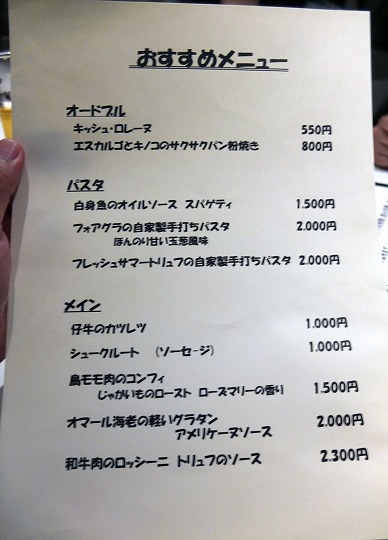 おすすめメニュー
オードブル
キッシュ・ロレーヌ 550円
エスカルゴとキノコのサクサクパン粉焼き 800円
パスタ
白身魚のオイルソース スパゲティ 1.500円
フォアグラの自家製手打ちパスタ 2.000円
ほんのり甘い玉葱風味
フレッシュサマートリュフの自家製手打ちパスタ 2.000円
メイン
仔牛のカツレツ 1.000円
シュークルート (ソーセージ) 1.000円
鳥モモ肉のコンフィ
じゃがいものロースト ローズマリーの香り 1.500円
オマール海老の軽いグラタン 2.000円
アメリケーヌソース
和牛肉のロッシーニ トリュフのソース 2.300円